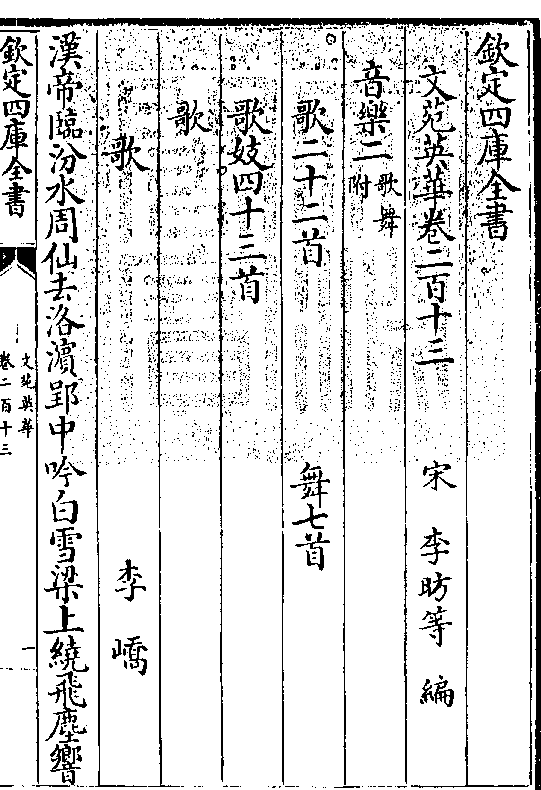 欽定四庫全書
文苑英華卷二百十三　宋　李昉等　編
音樂二歌舞附
歌二十二首　舞七首
歌妓四十三首
歌
歌　李嶠
漢帝臨汾水周仙去洛濱郢中吟白雪梁上繞飛塵響
欽定四庫全書　文苑英華
卷二百十三　一